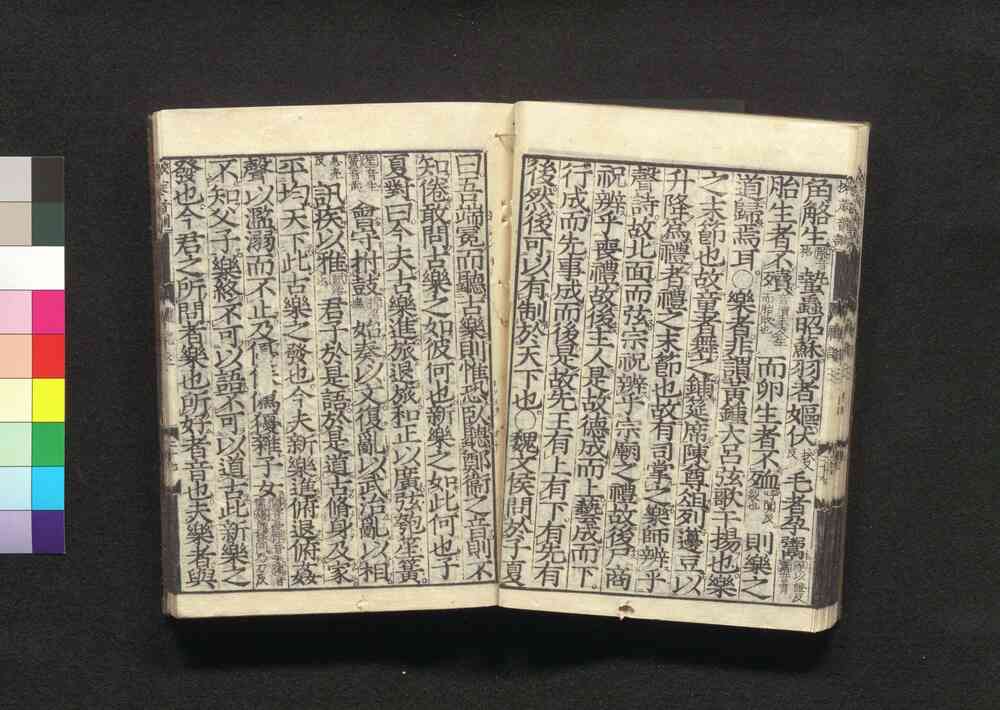 角觡生 蟄蟲昭蘇羽者嫗伏 毛者孕鬻
胎生者不殰 而卵生者不殈 則樂之
道歸焉耳○樂者非謂黃鍾大呂弦歌干揚也樂
之末節也故童者舞之鋪筵席陳尊俎列籩豆以
升降爲禮者禮之末節也故有司掌之樂師辨乎
聲詩故北面而弦宗祝辨乎宗廟之禮故後尸商
祝辨乎喪禮故後主人是故德成而上藝成而下
行成而先事成而後是故先王有上有下有先有
後然後可以有制於天下也○魏文侯問於子夏
曰吾端冕而聽古樂則惟恐臥聽鄭衛之音則不
知倦敢問古樂之如彼何也新樂之如此何也子
夏對曰今夫古樂進旅退旅和正以廣弦匏笙簧
會守拊鼓 始奏以文復亂以武治亂以相
訊疾以雅 君子於是語於是道古脩身及家
平均天下此古樂之發也今夫新樂進俯退俯姦
聲以濫溺而不止及優侏 獶雜子女
不知父子樂終不可以語不可以道古此新樂之
發也今君之所問者樂也所好者音也夫樂者與